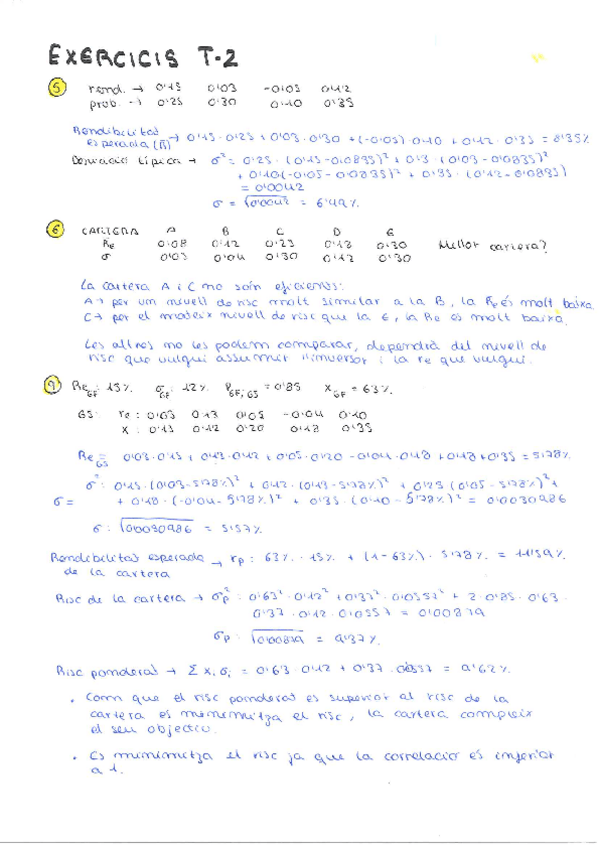 EXERCICIS T-2
5 rend. → 0'15 0'03 -0'05 0'12
prob. → 0'25 0'30 0'10 0'35
Rendibilitat
esperada (R̄) → 0'15 · 0'25 + 0'03 · 0'30 + (-0'05) · 0'10 + 0'12 · 0'35 = 8'35%
Desviació típica → σ² = 0'25 · (0'15 - 0'0835)² + 0'3 · (0'03 - 0'0835)²
+ 0'10(-0'05 - 0'0835)² + 0'35 · (0'12 - 0'0835)
= 0'0042
σ = √0'0042 = 6'49%
6 CARTERA A B C D E
Re 0'08 0'12 0'23 0'18 0'30 Millor cartera?
σ 0'03 0'04 0'30 0'12 0'30
La cartera A i C no són eficients:
A → per un nivell de risc molt similar a la B, la Re és molt baixa
C → per el mateix nivell de risc que la E, la Re es molt baixa.
Les altres no les podem comparar, dependrà del nivell de
risc que vulgui assumir l'inversor i la re que vulgui.
9 Re GF: 15% σ GF: 12% ρ GF, GS = 0'85 X GF = 63%
GS: re: 0'03 0'13 0'05 -0'04 0'10
X: 0'15 0'12 0'20 0'18 0'35
Re GS = 0'03 · 0'15 + 0'13 · 0'12 + 0'05 · 0'20 - 0'04 · 0'18 + 0'10 · 0'35 = 5'78%
σ²: 0'15 · (0'03 - 5'78%)² + 0'12 · (0'13 - 5'78%)² + 0'20 (0'05 - 5'78%)² +
σ = + 0'18 · (-0'04 - 5'78%)² + 0'35 · (0'10 - 5'78%)² = 0'0030986
σ: √0'0030986 = 5'57%
Rendibilitat esperada → rp: 63% · 15% + (1-63%) · 5'78% = 11'59%
de la cartera
Risc de la cartera → σp²: 0'63² · 0'12² + 0'37² · 0'0557² + 2 · 0'85 · 0'63 ·
0'37 · 0'12 · 0'0557 = 0'00879
σp: √0'00879 = 9'37%
Risc ponderat → Σ Xi σi = 0'63 · 0'12 + 0'37 · 0'0557 = 9'62%
• Com que el risc ponderat es superior al risc de la
cartera es minimitza el risc, la cartera compleix
el seu objectiu.
• Es minimitza el risc ja que la correlació és inferior
a 1.